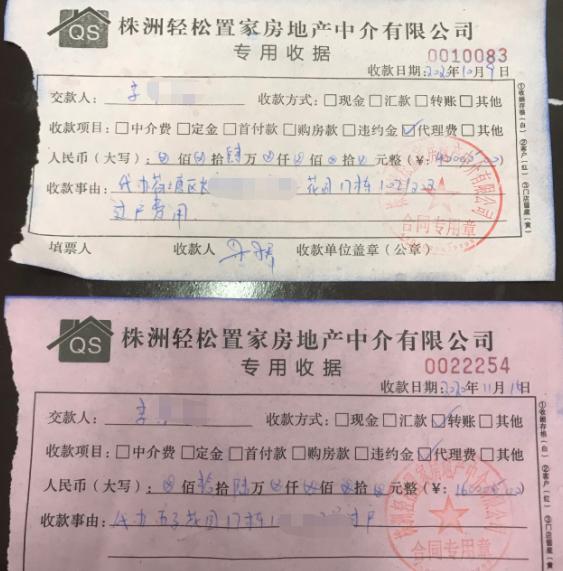 QS 株洲轻松置家房地产中介有限公司
专用收据 0010083
收款日期:2020年10月9日
交款人: 李 收款方式:□现金□汇款□转账□其他
收款项目:□中介费□定金□首付款□购房款□违约金☑代理费□其他
人民币(大写):⊗佰⊗拾肆万⊗仟⊗佰⊗拾⊗元整(¥:40000.00)
收款事由: 代办 花园17栋
过户费用
填票人 收款人 收款单位盖章(公章)
合同专用章
①收据存根(白) ②客户(红) ③门店留底(黄)
QS 株洲轻松置家房地产中介有限公司
专用收据 0022254
收款日期:2020年11月 日
交款人: 李 收款方式:□现金□汇款☑转账□其他
收款项目:□中介费□定金□首付款□购房款□违约金☑代理费□其他
人民币(大写):⊗佰 拾陆万⊗仟⊗佰⊗拾⊗元整(¥:
收款事由: 代办 花园17栋 过户
合同专用章
①收据存根(白) ②客户(红)